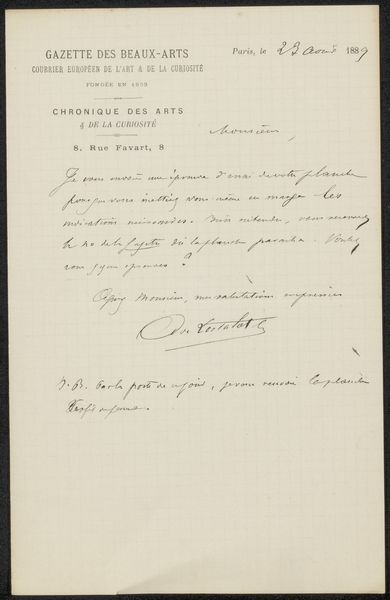 GAZETTE DES BEAUX-ARTS
COURRIER EUROPÉEN DE L'ART & DE LA CURIOSITÉ
FONDÉE EN 1859
CHRONIQUE DES ARTS
& DE LA CURIOSITÉ
8, Rue Favart, 8
Paris, le 23 août 1889
Monsieur,
Je vous envoie une épreuve d'essai de votre planche
pour que vous mettiez vous-même en marge les
indications nécessaires. Bien entendu, vous recevrez
le no de la Gazette où la planche paraîtra. Voulez
vous épreuves ?
Monsieur, mes salutations empressées
de Lostalot
N. B. Par la poste de ce jour, je vous renvoie la planche